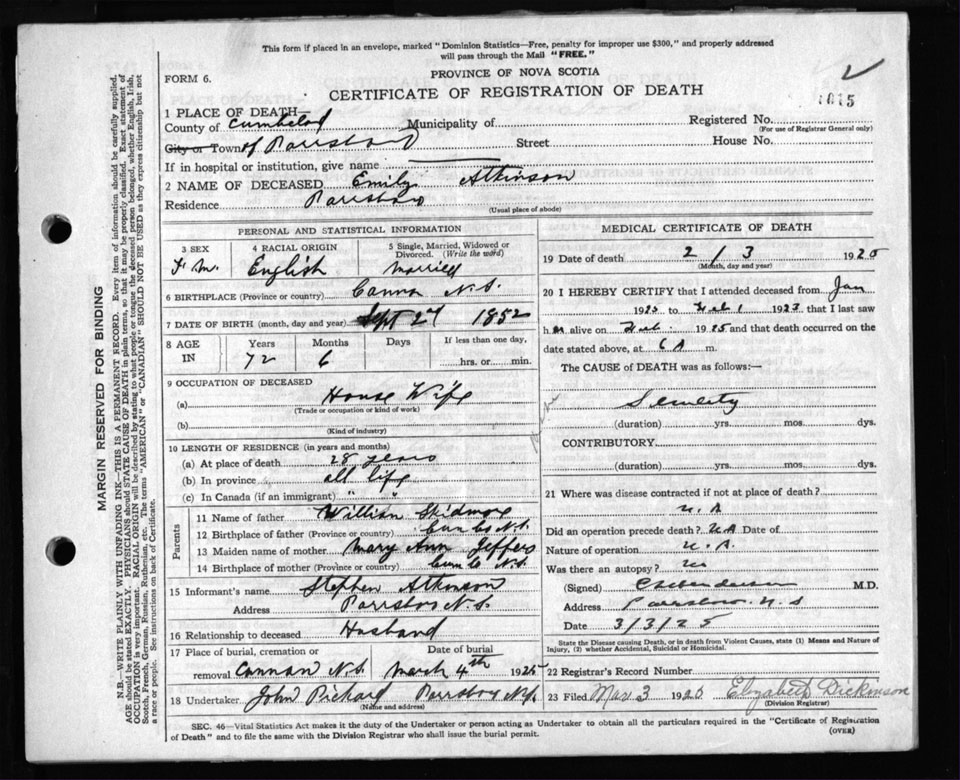 This form if placed in an envelope, marked "Dominion Statistics—Free, penalty for improper use $300," and properly addressed
will pass through the Mail "FREE."
PROVINCE OF NOVA SCOTIA
FORM 6.
CERTIFICATE OF REGISTRATION OF DEATH
1015
1 PLACE OF DEATH—
County of Municipality of Registered No.
(For use of Registrar General only)
City or Town of Parrsboro Street House No.
If in hospital or institution, give name
2 NAME OF DECEASED Emily Atkinson
Residence Parrsboro
(Usual place of abode)
PERSONAL AND STATISTICAL INFORMATION
3 SEX 4 RACIAL ORIGIN 5 Single, Married, Widowed or
Divorced. (Write the word)
English Married
6 BIRTHPLACE (Province or country) N.S.
7 DATE OF BIRTH (month, day and year) Sept 27 1852
8 AGE IN Years Months Days If less than one day,
72 6 hrs. or min.
9 OCCUPATION OF DECEASED
(a) House Wife
(Trade or occupation or kind of work)
(b)
(Kind of industry)
10 LENGTH OF RESIDENCE (in years and months)
(a) At place of death 28 years
(b) In province all life
(c) In Canada (if an immigrant) " "
Parents
11 Name of father William Skidmore
12 Birthplace of father (Province or country) Cumb N.S.
13 Maiden name of mother Mary Ann Jeffers
14 Birthplace of mother (Province or country) Cumb N.S.
15 Informant's name Stephen Atkinson
Address Parrsboro N.S.
16 Relationship to deceased Husband
17 Place of burial, cremation or Date of burial
removal N.S. March 4th 1925
18 Undertaker John Pickard Parrsboro N.S.
(Name and address)
MEDICAL CERTIFICATE OF DEATH
19 Date of death 2/3 1925
(Month, day and year)
20 I HEREBY CERTIFY that I attended deceased from Jan
to 1 that I last saw
h alive on 1925 and that death occurred on
date stated above, at 6 A m.
The CAUSE of DEATH was as follows:—
(duration) yrs. mos. dys.
CONTRIBUTORY
(duration) yrs. mos. dys.
21 Where was disease contracted if not at place of death?
Did an operation precede death? Date of
Nature of operation
Was there an autopsy?
(Signed) M.D.
Address Parrsboro N.S
Date 3/3/25
State the Disease causing Death, or in death from Violent Causes, state (1) Means and Nature of
Injury, (2) whether Accidental, Suicidal or Homicidal.
22 Registrar's Record Number
23 Filed Mar 3 1925 Elizabeth Dickinson
(Division Registrar)
SEC. 46—Vital Statistics Act makes it the duty of the Undertaker or person acting as Undertaker to obtain all the particulars required in the "Certificate of Registration
of Death" and to file the same with the Division Registrar who shall issue the burial permit. (OVER)
MARGIN RESERVED FOR BINDING
N.B.—WRITE PLAINLY WITH UNFADING INK—THIS IS A PERMANENT RECORD. Every item of information should be carefully supplied.
AGE should be stated EXACTLY. PHYSICIANS should STATE CAUSE OF DEATH in plain terms, so that it may be properly classified. Exact statement of
OCCUPATION is very important. RACIAL ORIGIN will be described by stating to what people or tongue the deceased person belonged, whether English, Irish,
Scotch, French, German, Russian, Ruthenian, etc. The terms "AMERICAN" or "CANADIAN" SHOULD NOT BE USED as they express citizenship but not
a race or people. See instructions on back of Certificate.